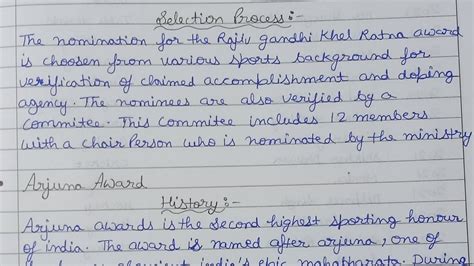 Selection Process:-
The nomination for the Rajiv gandhi Khel Ratna award
is choosen from various sports background for
verification of claimed accomplishment and doping
agency. The nominees are also verified by a
commitee. This Commitee includes 12 members
with a chair Person who is nominated by the ministry
Arjuna Award
History:-
Arjuna awards is the second highest sporting honour
of india. The award is named after arjuna, one of
ancient india's epic mahatharata. During